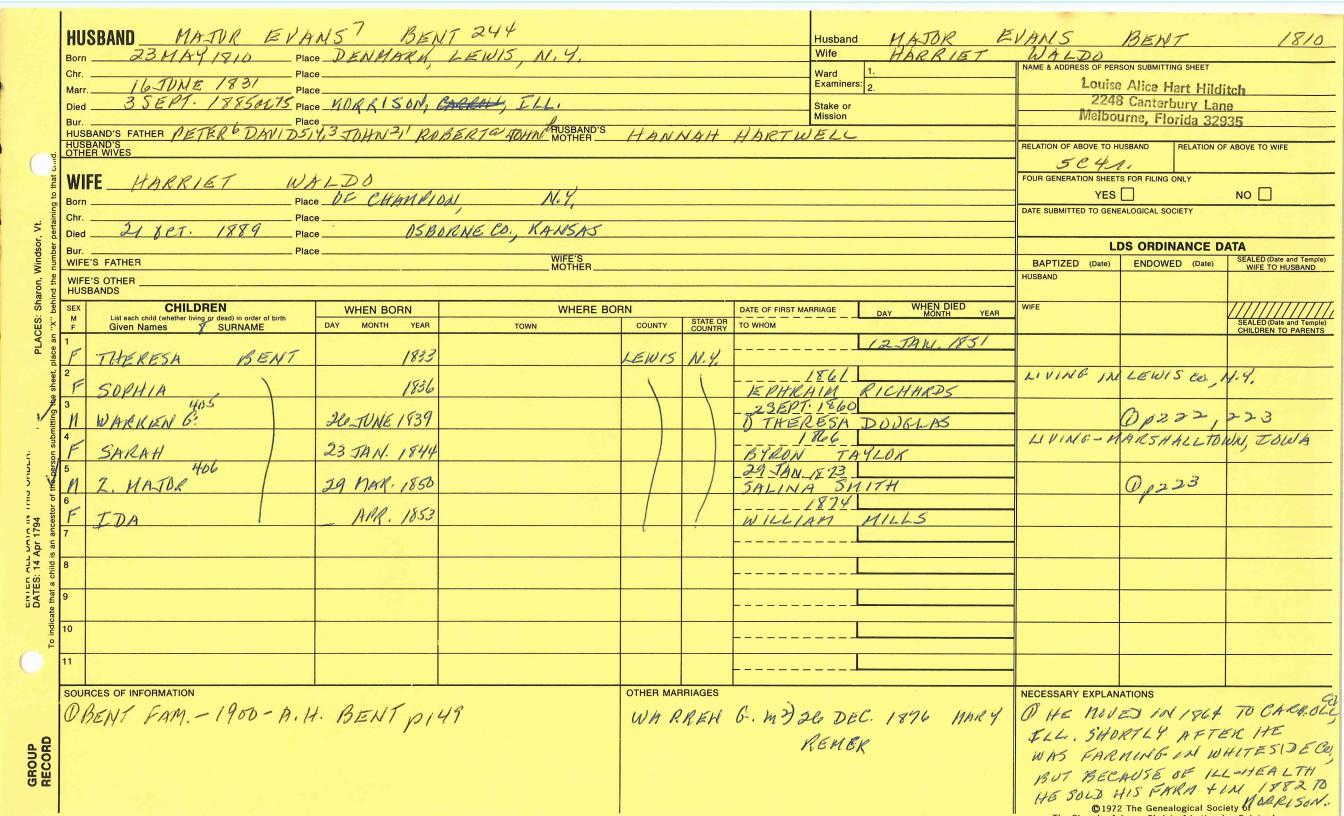 HUSBAND MAJOR EVANS7 BENT 244
Born 23 MAY 1810 Place DENMARK, LEWIS, N.Y.
Chr. Place
Marr. 16 JUNE 1831 Place
Died 3 SEPT. 1885 Place MORRISON, ILL.
Bur. Place
HUSBAND'S FATHER PETER6 DAVID5,4,3 JOHN2,1 ROBERT JOHN HUSBAND'S MOTHER HANNAH HARTWELL
HUSBAND'S OTHER WIVES
Husband MAJOR EVANS BENT 1810
Wife HARRIET WALDO
Ward Examiners: 1.
2.
Stake or Mission
NAME & ADDRESS OF PERSON SUBMITTING SHEET
Louise Alice Hart Hilditch
2248 Canterbury Lane
Melbourne, Florida 32935
RELATION OF ABOVE TO HUSBAND RELATION OF ABOVE TO WIFE
5C4r.
FOUR GENERATION SHEETS FOR FILING ONLY
YES NO
DATE SUBMITTED TO GENEALOGICAL SOCIETY
WIFE HARRIET WALDO
Born Place OF CHAMPION, N.Y.
Chr. Place
Died 21 OCT. 1889 Place OSBORNE CO., KANSAS
Bur. Place
WIFE'S FATHER WIFE'S MOTHER
WIFE'S OTHER HUSBANDS
LDS ORDINANCE DATA
BAPTIZED (Date) ENDOWED (Date) SEALED (Date and Temple) WIFE TO HUSBAND
HUSBAND
WIFE
SEALED (Date and Temple) CHILDREN TO PARENTS
SEX M F CHILDREN WHEN BORN WHERE BORN DATE OF FIRST MARRIAGE WHEN DIED
List each child (whether living or dead) in order of birth
Given Names 8 SURNAME DAY MONTH YEAR TOWN COUNTY STATE OR COUNTRY TO WHOM DAY MONTH YEAR
1 12 JAN. 1851
F THERESA BENT 1833 LEWIS N.Y.
2 1861 LIVING IN LEWIS CO, N.Y.
F SOPHIA 1836 EPHRAIM RICHARDS
3 405 2 SEPT. 1860
M WARREN G. 26 JUNE 1839 THERESA DOUGLAS ① p222, 223
4 1866 LIVING-MARSHALLTOWN, IOWA
F SARAH 23 JAN. 1844 BYRON TAYLOR
5 406 29 JAN. 1873
M Z. MAJOR 29 MAR. 1850 SALINA SMITH ① p223
6 1874
F IDA _ APR. 1853 WILLIAM MILLS
7
8
9
10
11
SOURCES OF INFORMATION
① BENT FAM.-1900-A.H. BENT p149
OTHER MARRIAGES
WARREN G. m2) 26 DEC. 1876 MARY
REMER
NECESSARY EXPLANATIONS
① HE MOVED IN 1864 TO CARROLL CO,
ILL. SHORTLY AFTER HE
WAS FARMING IN WHITESIDE CO,
BUT BECAUSE OF ILL-HEALTH
HE SOLD HIS FARM + IN 1882 TO
MORRISON.
©1972 The Genealogical Society of
PLACES: Sharon, Windsor, Vt.
ENTER ALL DATA IN THIS ORDER:
DATES: 14 Apr 1794
To indicate that a child is an ancestor of the person submitting the sheet, place an "X" behind the number pertaining to that child.
GROUP RECORD